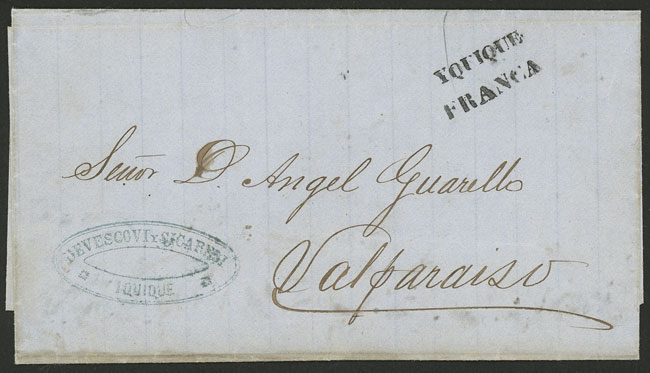 YQUIQUE
FRANCA
Señor D. Angel Guarello
Valparaiso
DEVESCOVI Y
IQUIQUE